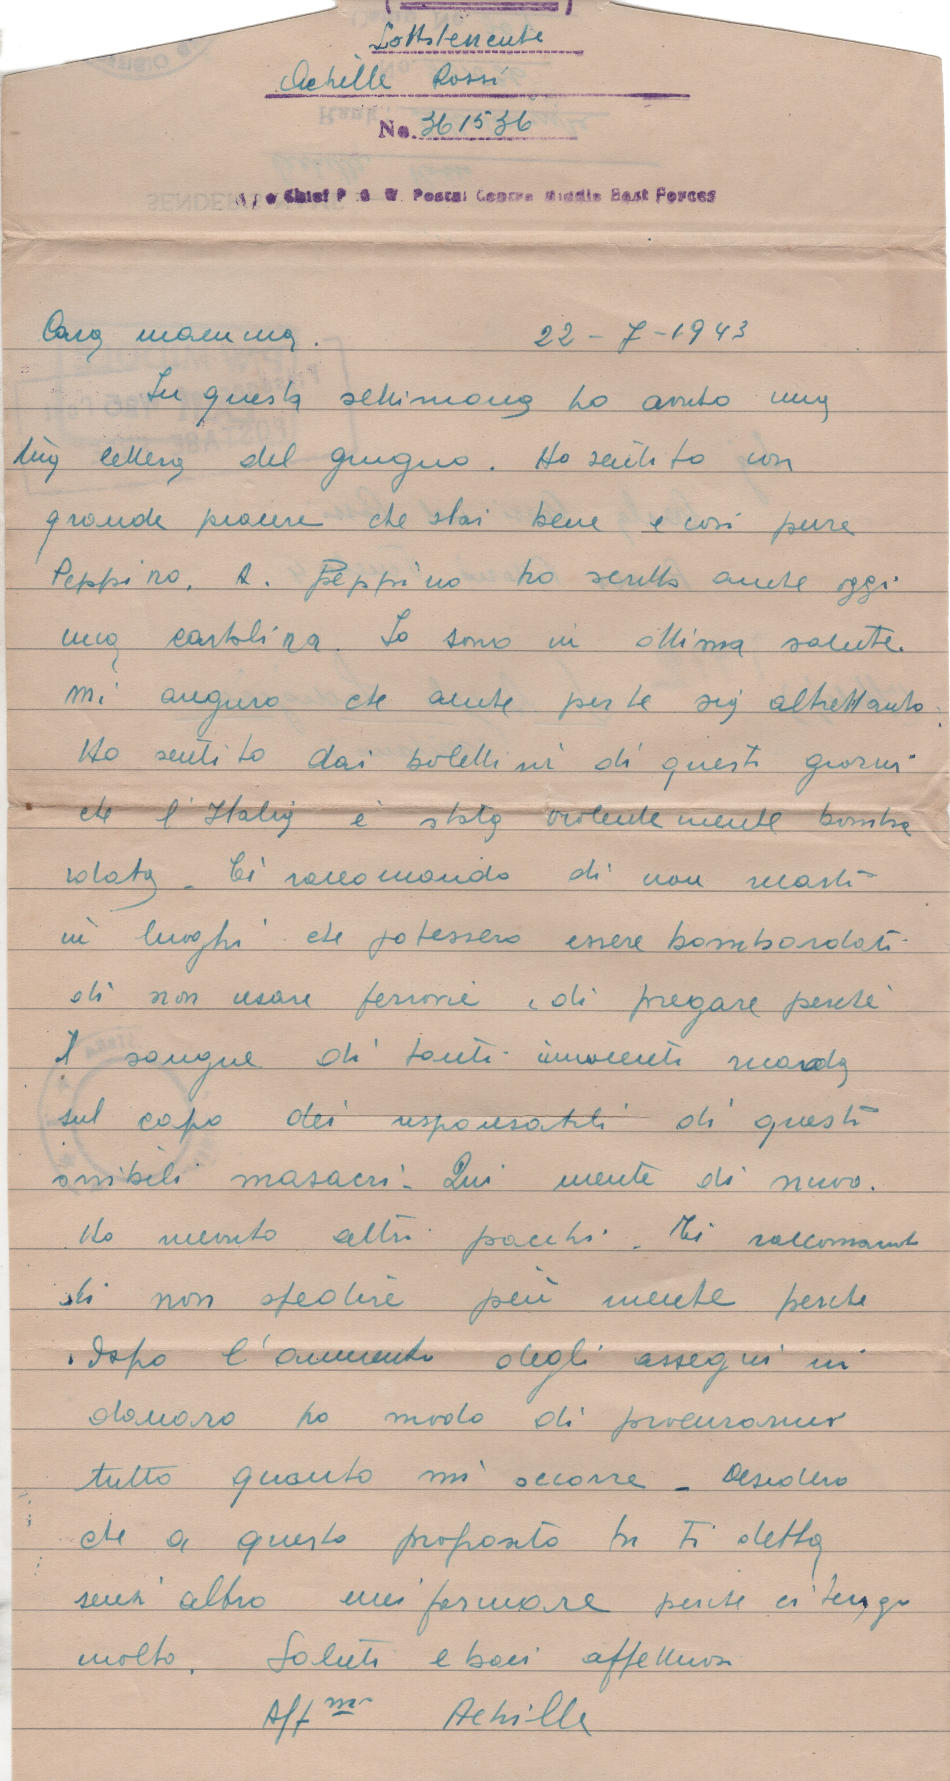 Sottotenente
Achille Rossi
No. 361536
c/o Chief P. O. W. Postal Centre Middle East Forces
Cara mamma. 22-7-1943
In questa settimana ho avuto una
tua lettera del giugno. Ho sentito con
grande piacere che stai bene e così pure
Peppino. A. Peppino ho scritto anche oggi
una cartolina. Io sono in ottima salute.
Mi auguro che anche per te sia altrettanto.
Ho sentito dai bolettini di questi giorni
che l'Italia è stata violentemente bomba
rdata. Ti raccomando di non recarti
in luoghi che potessero essere bombardati
di non usare ferrovie, di pregare perché
il sangue di tanti innocenti ricada
sul capo dei responsabili di questi
orribili masacri. Qui niente di nuovo.
Ho ricevuto altri pacchi. Ti raccomando
di non spedire più niente perché
dopo l'aumento degli assegni in
danaro ho modo di procurarmi
tutto quanto mi occorre. Desidero
che a questo proposito tu ti debba
senz'altro uniformare perché ci tengo
molto. Saluti e baci affettuosi
Aff.mo Achille